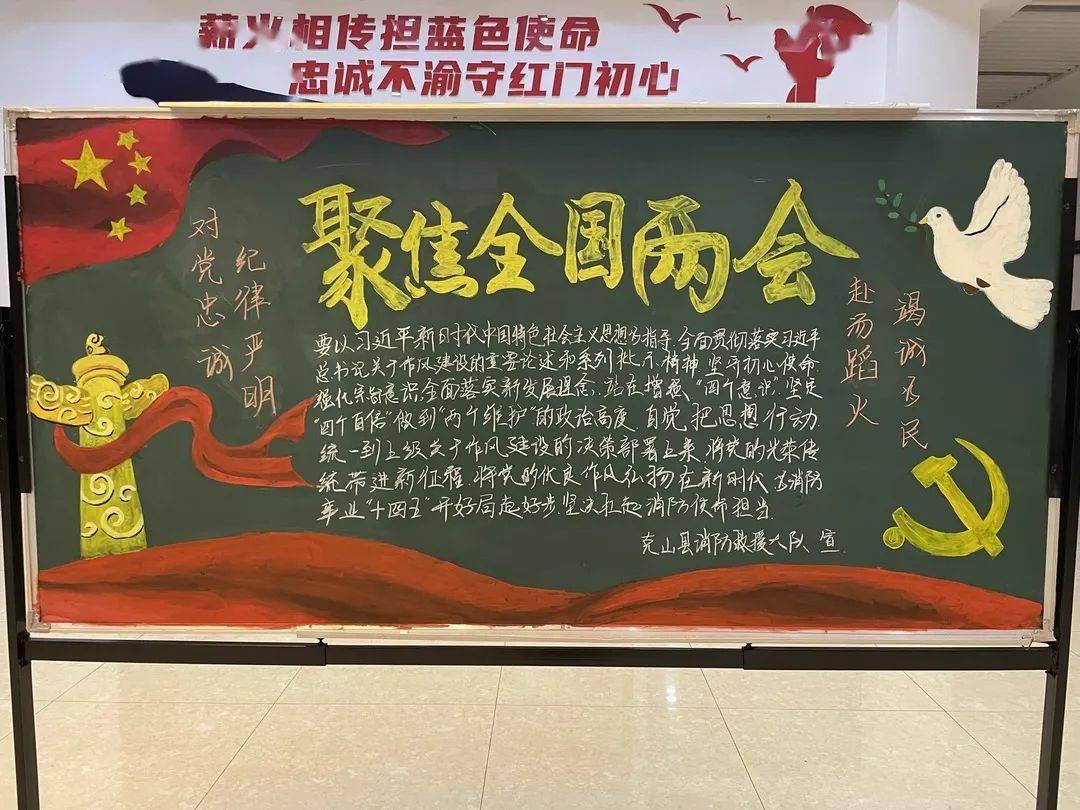 薪火相传担蓝色使命
忠诚不渝守红门初心
聚焦全国两会
对党忠诚
纪律严明
赴汤蹈火
竭诚为民
要以习近平新时代中国特色社会主义思想为指导,全面贯彻落实习近平
总书记关于作风建设的重要论述和系列批示精神,坚守初心使命
强化宗旨意识,全面落实新发展理念,站在增强“四个意识”坚定
“四个自信”做到“两个维护”的政治高度,自觉把思想行动
统一到上级关于作风建设的决策部署上来,将党的光荣传
统带进新征程,将党的优良作风弘扬在新时代,为消防
事业“十四五”开好局起好步,坚决扛起消防使命担当.
克山县消防救援大队 宣